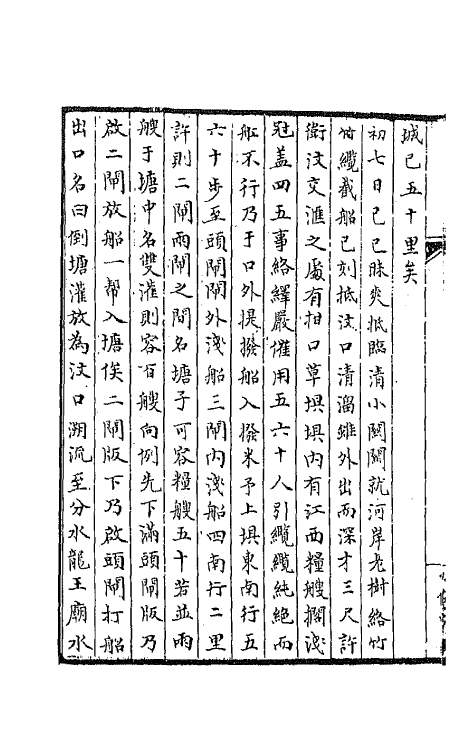 城已五十里矣
初七日己巳昧爽抵臨清小閘關就河岸老樹絡竹
竹纜截船巳刻抵汶口清溜雖外出而深才三尺許
衛汶交滙之處有拑口草垻垻內有江西糧艘擱淺
冠盖四五事絡繹嚴催用五六十人引纜纜純絕而
船不行乃于口外提撥船入撥米予上垻東南行五
六十步至頭閘閘外淺船三閘內淺船四南行二里
許則二閘兩閘之間名塘子可容糧艘五十若並兩
艘于塘中名雙灌則容百艘向例先下滿頭閘版乃
啟二閘放船一帮入塘俟二閘版下乃啟頭閘打船
出口名曰倒塘灌放為汶口溯流至分水龍王廟水